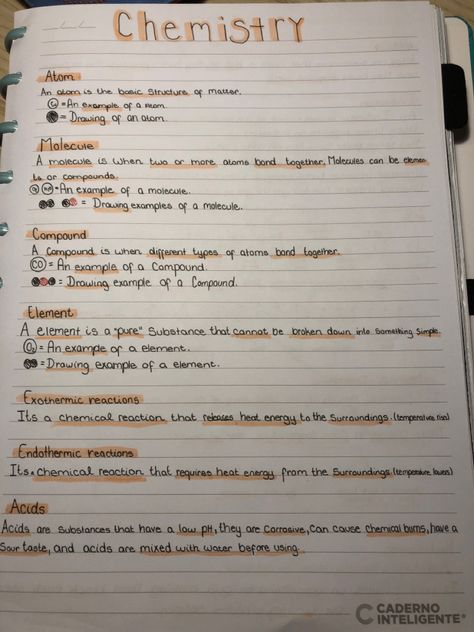 Chemistry
Atom
An atom is the basic structure of matter.
= An example of a atom.
= Drawing of an atom.
Molecule
A molecule is when two or more atoms bond together. Molecules can be elemen
ts or compounds.
= An example of a molecule.
= Drawing examples of a molecule.
Compound
A compound is when different types of atoms bond together.
CO = An example of a Compound.
= Drawing example of a Compound.
Element
A element is a "pure" Substance that cannot be broken down into something simple.
O₂ = An example of a element.
= Drawing example of a element.
Exothermic reactions
Its a chemical reaction that releases heat energy to the surroundings. (temperature rises)
Endothermic reactions
Its a chemical reaction that requires heat energy from the surroundings. (temperature lowers)
Acids
Acids are substances that have a low pH, they are corrosive, can cause chemical burns, have a
sour taste, and acids are mixed with water before using.
CADERNO
INTELIGENTE®